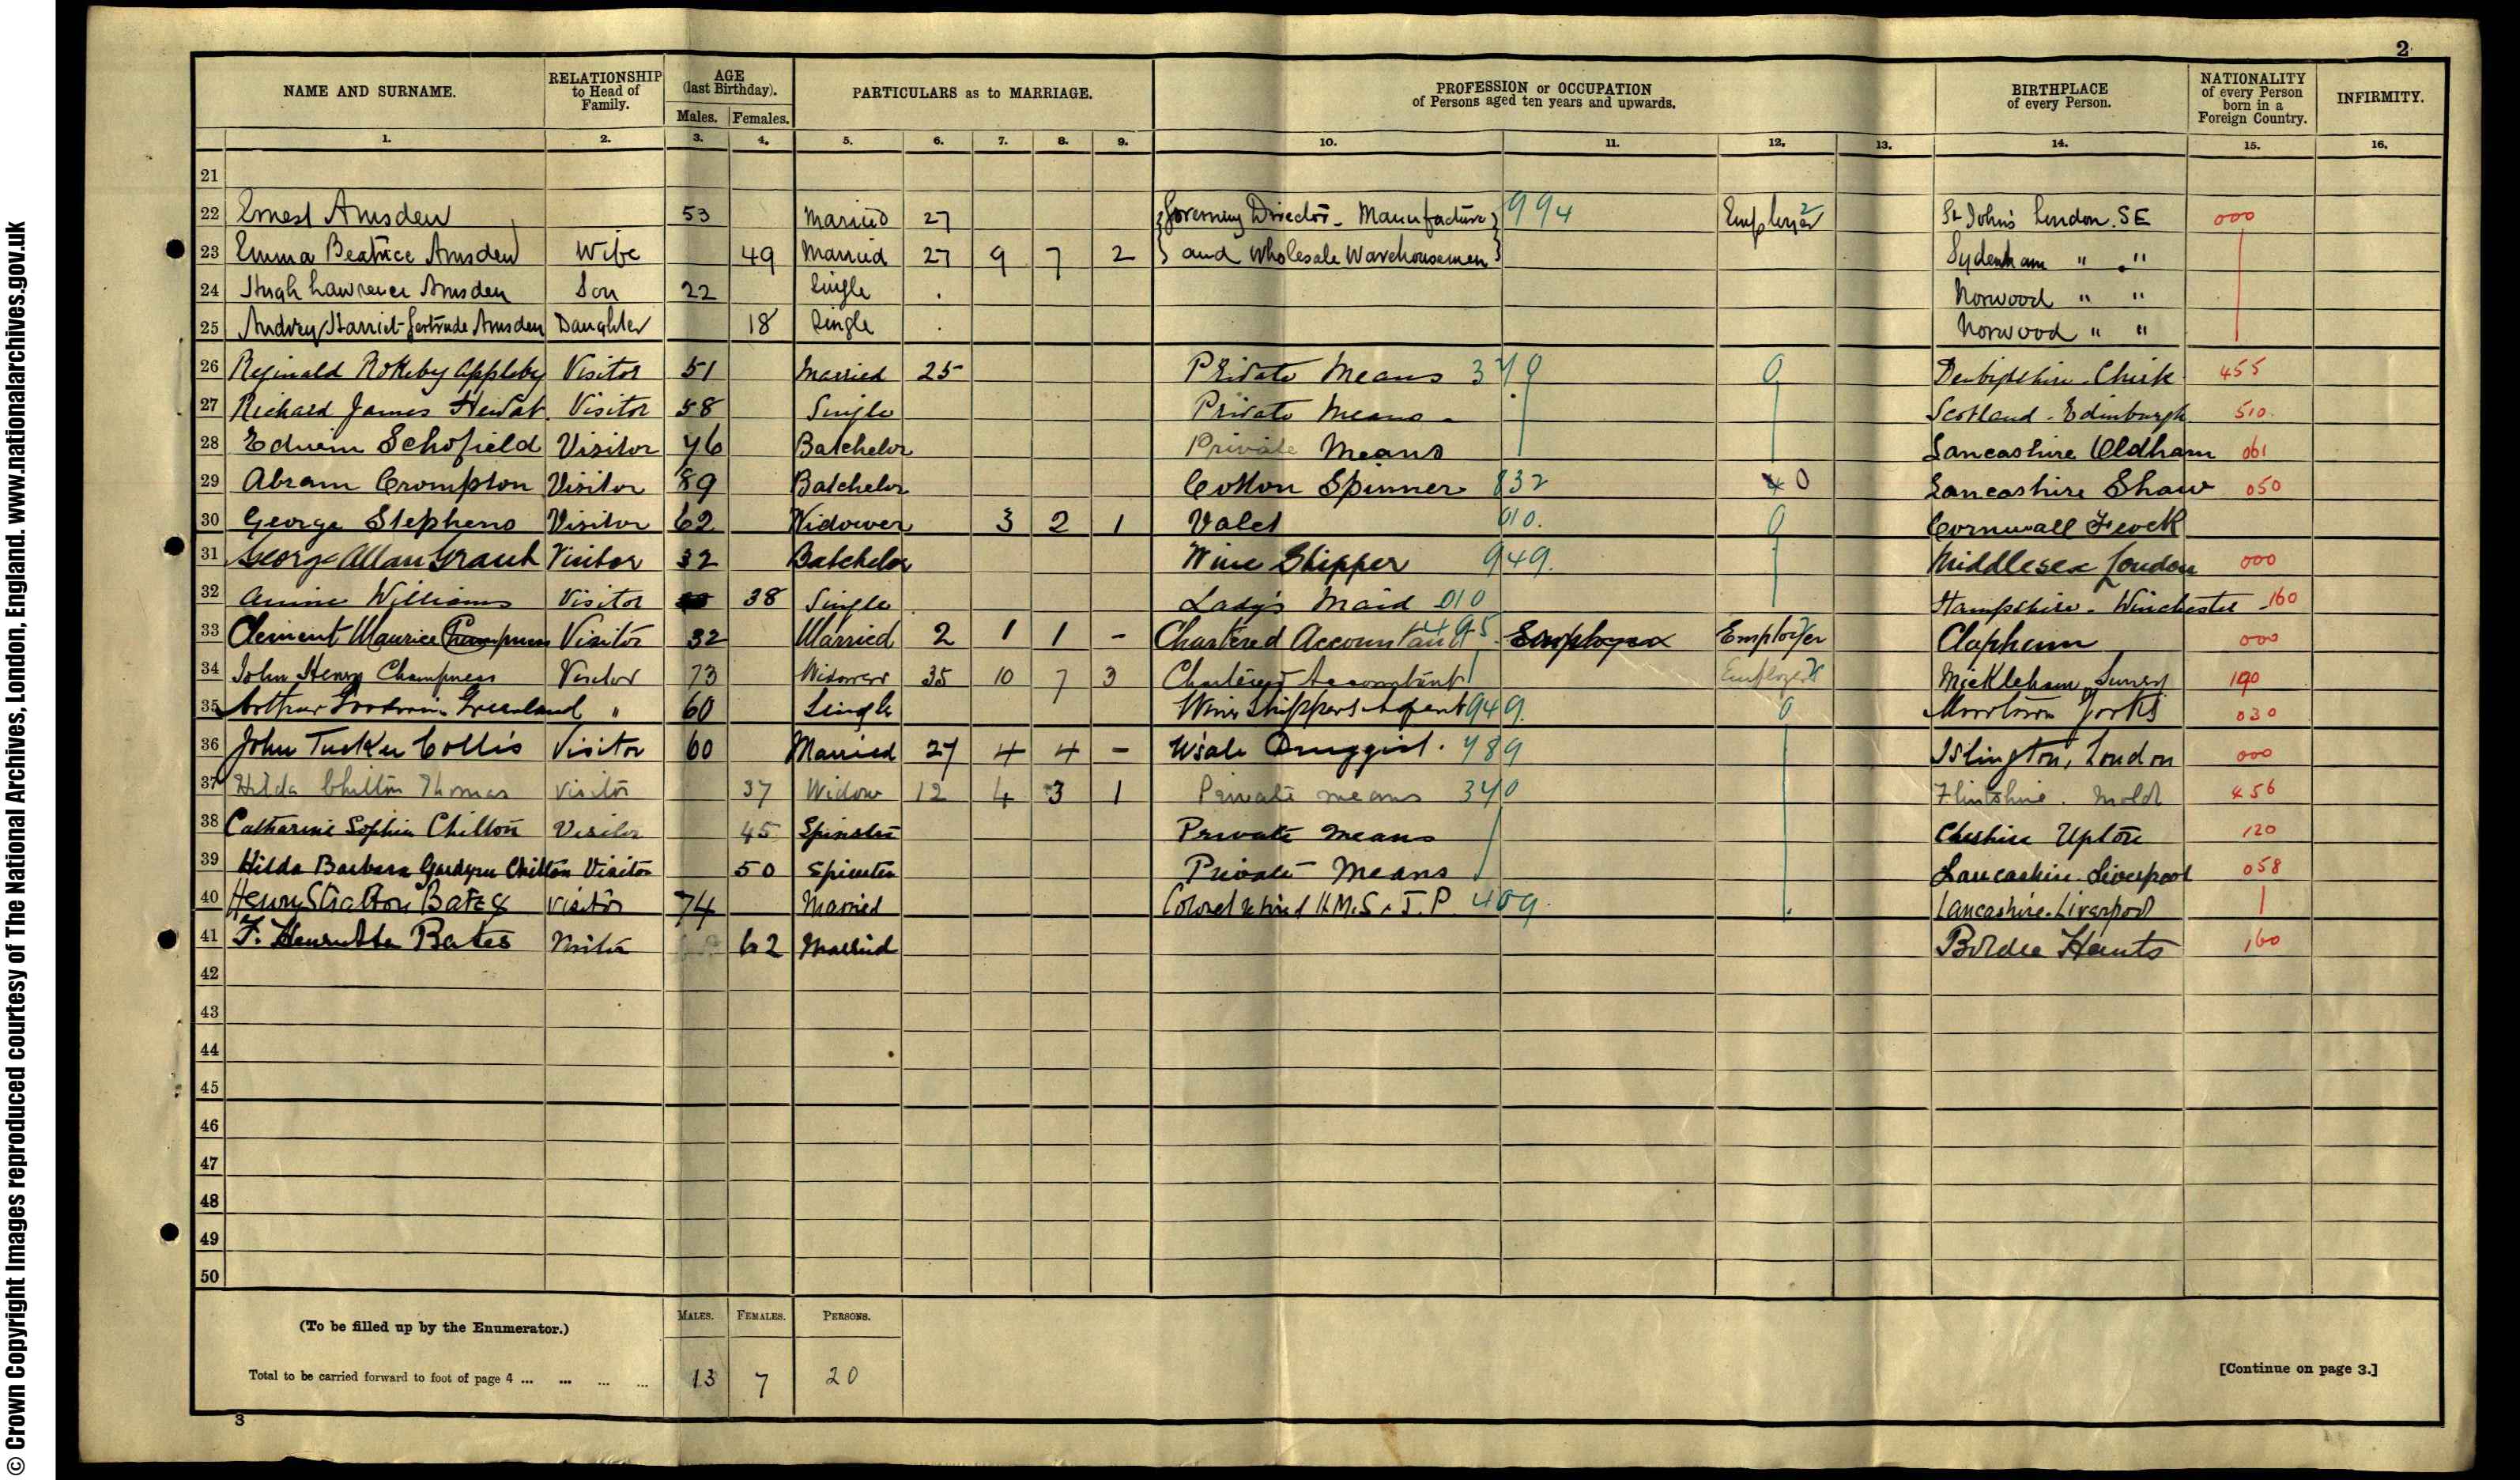 © Crown Copyright Images reproduced courtesy of The National Archives, London, England. www.nationalarchives.gov.uk
2
NAME AND SURNAME. RELATIONSHIP to Head of Family. AGE (last Birthday). Males. Females. PARTICULARS as to MARRIAGE. PROFESSION or OCCUPATION of Persons aged ten years and upwards. BIRTHPLACE of every Person. NATIONALITY of every Person born in a Foreign Country. INFIRMITY.
1. 2. 3. 4. 5. 6. 7. 8. 9. 10. 11. 12. 13. 14. 15. 16.
21
22 Ernest Amsden 53 Married 27 Governing Director - Manufacture 994 Employer 2 St Johns London. SE 000
23 Emma Beatrice Amsden Wife 49 Married 27 9 7 2 and Wholesale Warehousemen Sydenham " "
24 Hugh Lawrence Amsden Son 22 Single Norwood " "
25 Audrey Harriet Gertrude Amsden Daughter 18 Single Norwood " "
26 Reginald Rokeby Appleby Visitor 51 Married 25 Private Means 340 0 Denbighshire Chirk 455
27 Richard James Visitor 58 Single Private Means Scotland - Edinburgh 510
28 Edwin Schofield Visitor 46 Batchelor Private Means Lancashire Oldham 061
29 Abram Crompton Visitor 89 Batchelor Cotton Spinner 832 0 Lancashire Shaw 050
30 George Stephens Visitor 62 Widower 3 2 1 Valet 010. 0 Cornwall Feock
31 George Allan Grant Visitor 32 Batchelor Wine Shipper 949. Middlesex London 000
32 Annie Williams Visitor 38 Single Lady's Maid 010 Hampshire - Winchester 160
33 Clement Maurice Visitor 32 Married 2 1 1 - Chartered Accountant Employer Employer Clapham 000
34 John Henry Champness Visitor 73 Widower 35 10 7 3 Chartered Accountant Employer Mickleham Surrey 190
35 Arthur Goodwin Greenland " 60 Single Wine Shippers Agent 949. 0 Yorks 030
36 John Tucker Collis Visitor 60 Married 27 4 4 - W'sale Druggist. 789 Islington, London 000
37 Hilda Chilton Thomas Visitor 37 Widow 12 4 3 1 Private means 340 Flintshire. Mold 456
38 Catharine Sophia Chilton Visitor 45 Spinster Private Means Cheshire Upton 120
39 Hilda Barbara Chilton Visitor 50 Spinster Private Means Lancashire. Liverpool 058
40 Henry Stratton Bates Visitor 74 Married Colonel retired H.M.S. J.P. 409. Lancashire. Liverpool
41 F. Henrietta Bates Visitor 62 Married Hants 160
42
43
44
45
46
47
48
49
50
MALES. FEMALES. PERSONS.
(To be filled up by the Enumerator.)
Total to be carried forward to foot of page 4 ... ... ... ... 13 7 20
[Continue on page 3.]
3